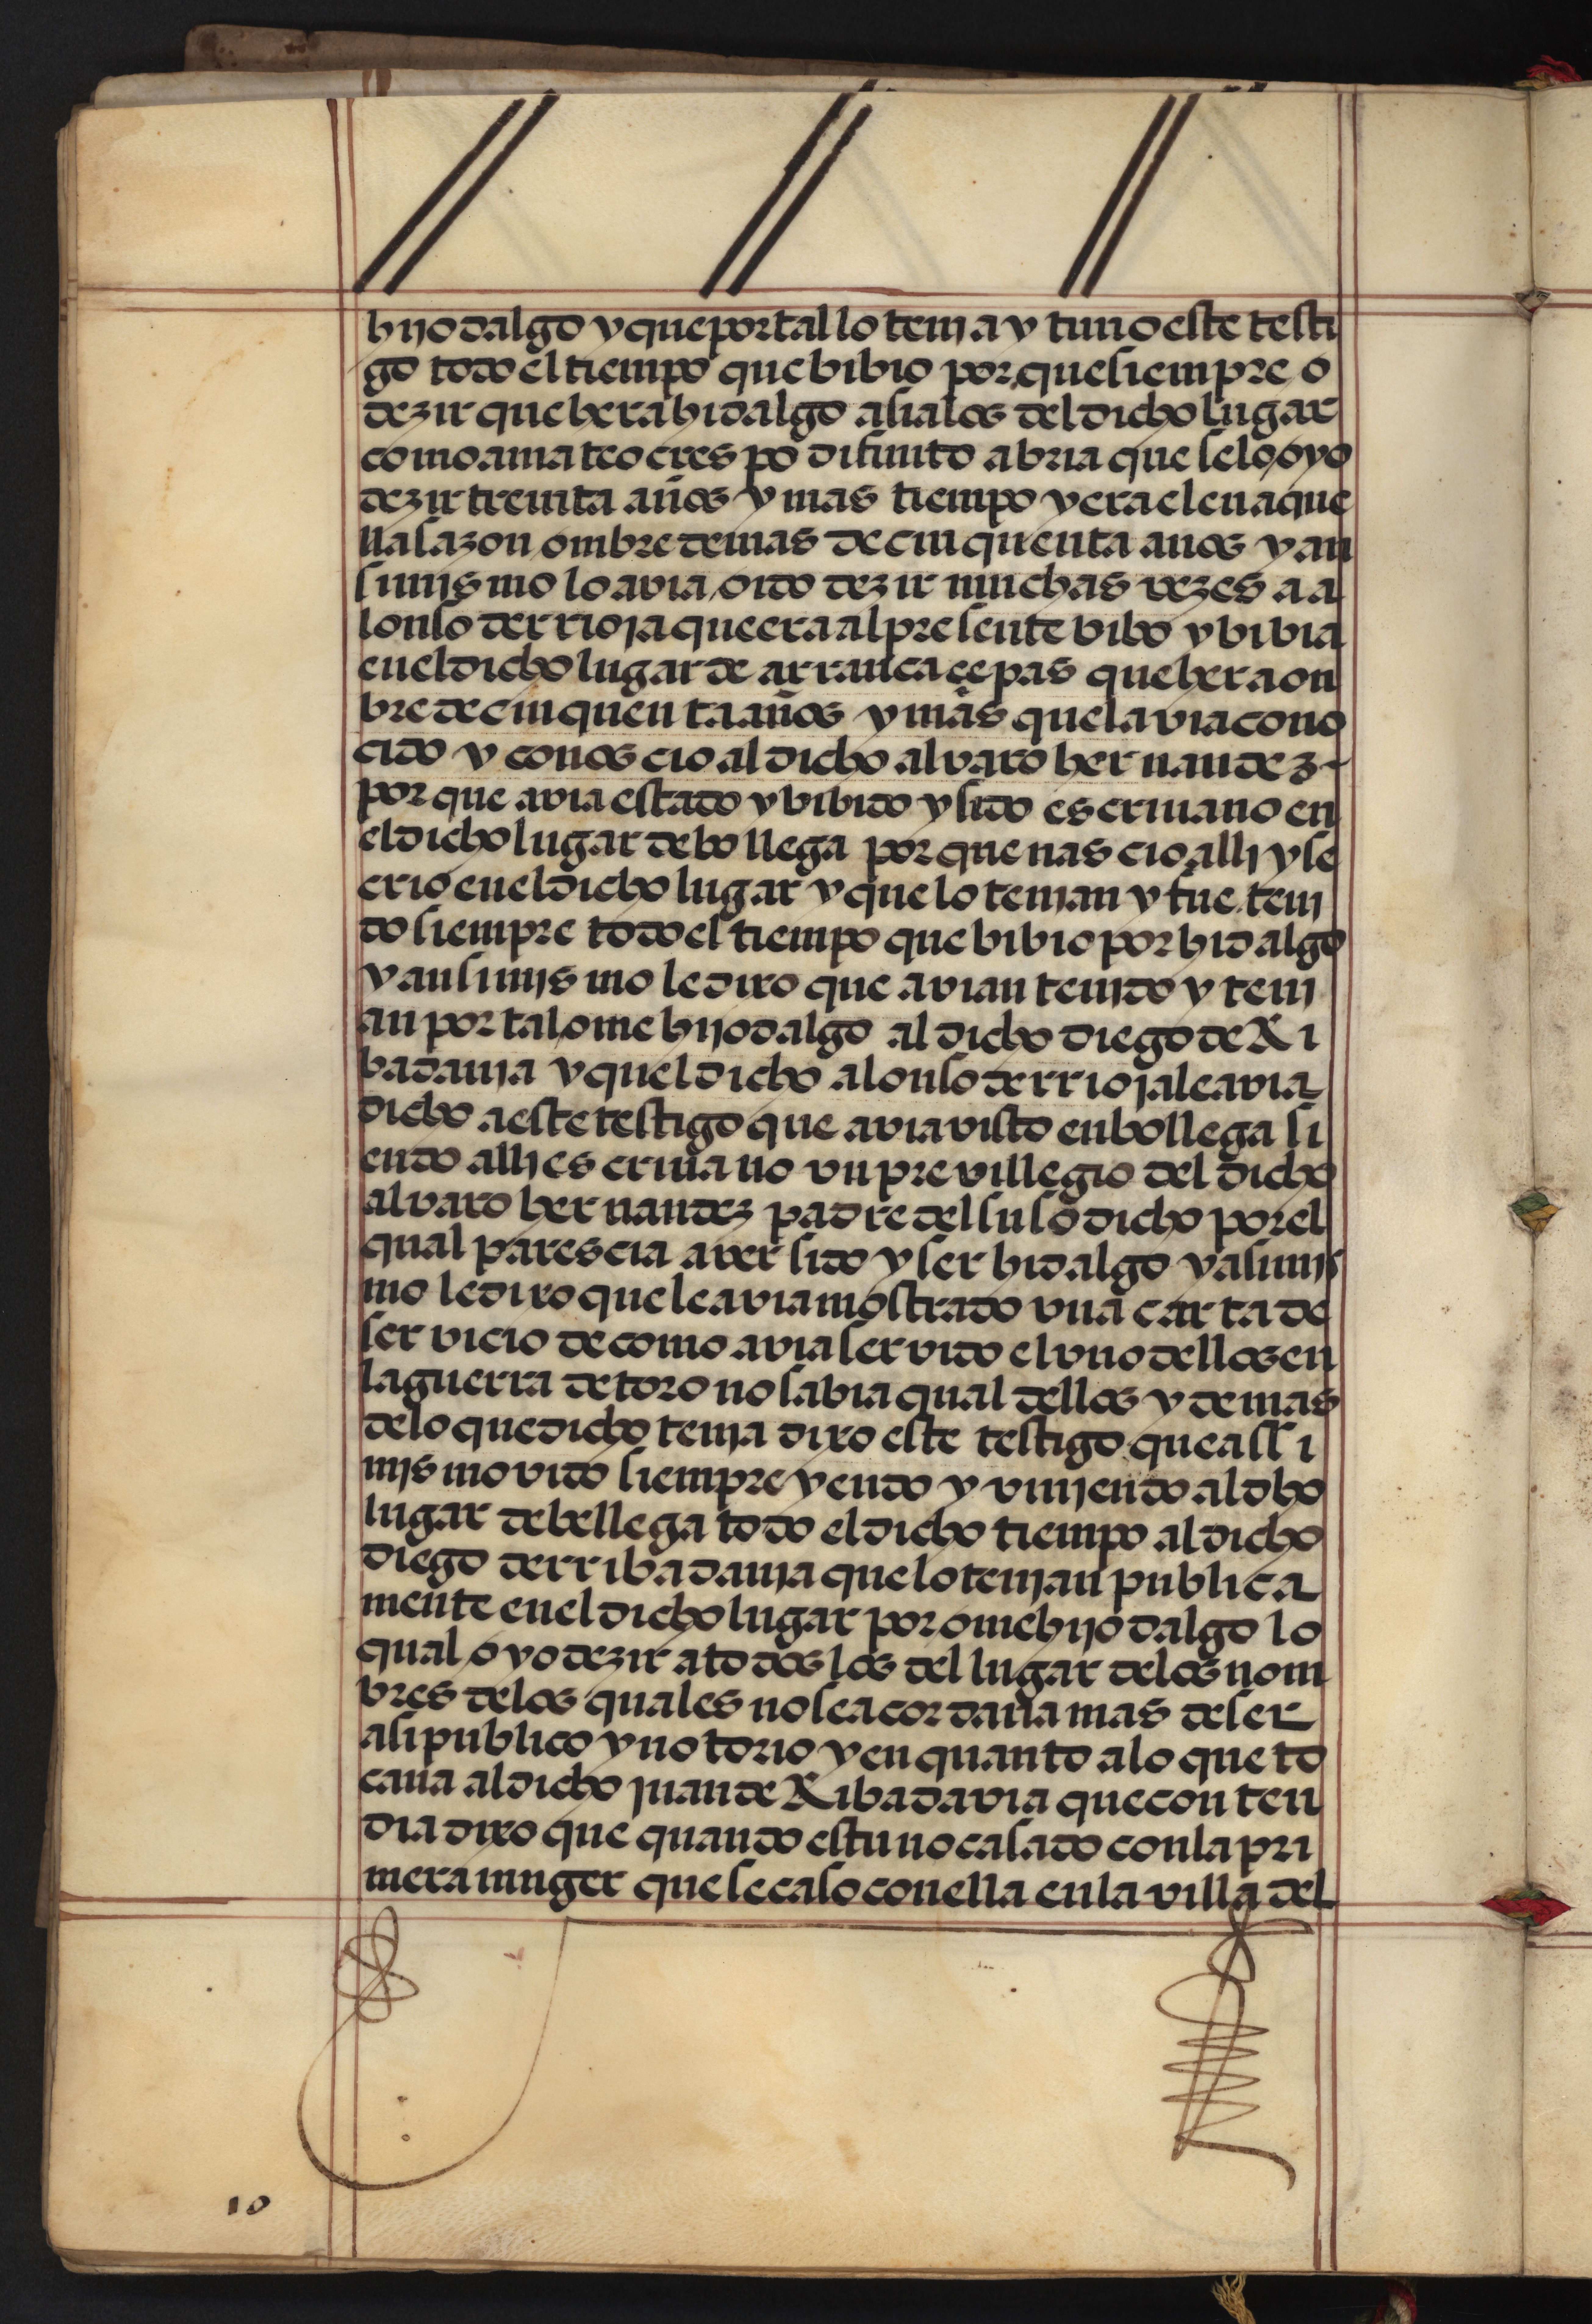 hijodalgo y que por tal lo tenia y tuuo este testi
go todo el tiempo que bibio porque siempre o
dezir que hera hidalgo asi a los del dicho lugar
como a mateo crespo difunto abria que se lo oyo
dezir treinta años y mas tiempo y era el en aque
lla sazon ombre de mas de cinquenta anos y an
simismo lo avia oido dezir muchas vezes a a
lonso de rrioja que era al presente vibo y bibia
en el dicho lugar de arrancacepas que hera on
bre de cinquenta años y mas que lavia cono
cido y conoscio al dicho alvaro hernandez
porque avia estado y bibido y sido escriuano en
el dicho lugar de bollega porque nascio alli y se
crio en el dicho lugar y que lo tenian y fue teni
do siempre todo el tiempo que bibio por hidalgo
y ansimismo le dixo que avian tenido y teni
an por tal ome hijodalgo al dicho diego de Ri
badauia y quel dicho alonso de rrioja le avia
dicho a este testigo que avia visto en bollega si
endo alli escriuano vn previllegio del dicho
alvaro hernandez padre del susodicho por el
qual parescia aver sido y ser hidalgo y asimis
mo le dixo que le avia mostrado vna carta de
servicio de como avia servido el vno dellos en
la guerra de toro no sabia qual dellos y demas
de lo que dicho tenia dixo este testigo que assi
mismo vido siempre yendo y viniendo al dho
lugar de bellega todo el dicho tiempo al dicho
diego de rribadauia que lo tenian publica
mente en el dicho lugar por ome hijodalgo lo
qual oyo dezir a todos los del lugar de los nom
bres de los quales no se acordaua mas de ser
asi publico y notorio y en quanto a lo que to
caua al dicho juan de Ribadavia que conten
dia dixo que quando estuuo casado con la pri
mera muger que se caso con ella en la villa del
10